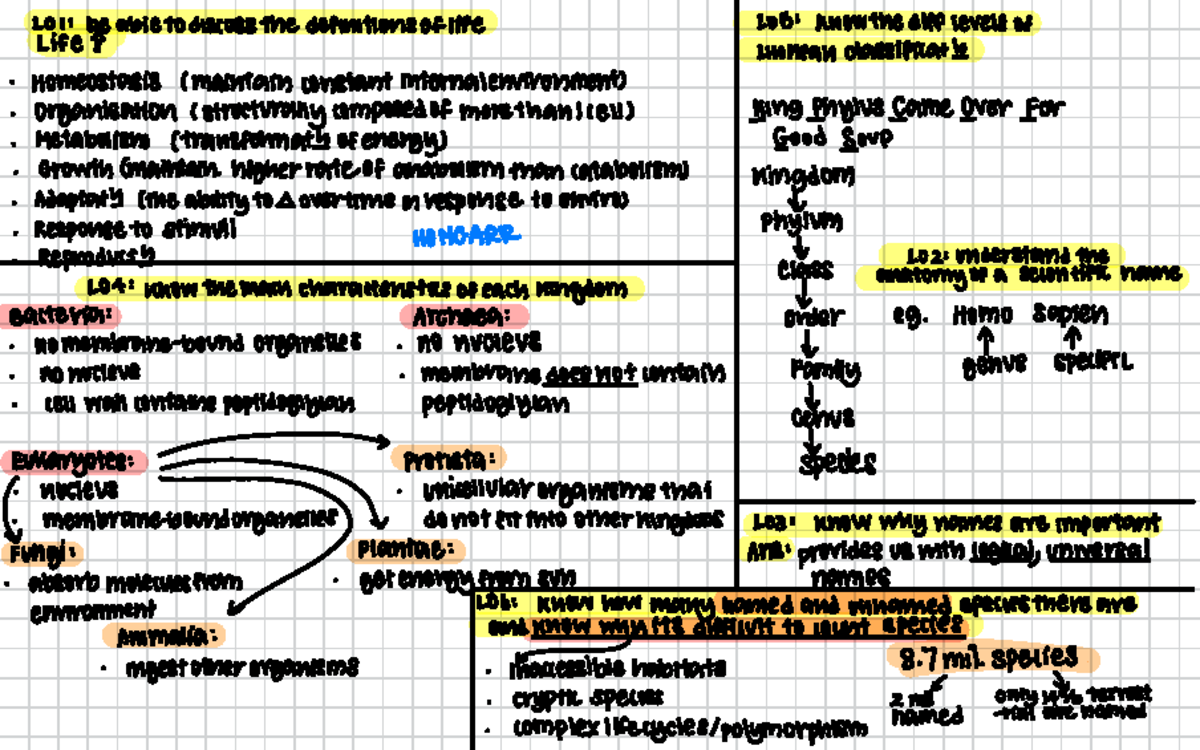 LO1: be able to discuss the definitions of life
Life ?
· Homeostasis (maintain constant internal environment)
· Organisation (structurally composed of more than 1 cell)
· Metabolism (transformat° of energy)
· Growth (maintain higher rate of anabolism than catabolism)
· Adaptat° (the ability to Δ overtime in response to enviro)
· Response to stimuli
· Reproduct°
HOMGARR
LO4: Know the main characteristics of each kingdom
Bacteria:
· no membrane-bound organelles
· no nucleus
· cell wall contains peptidoglycan
Archaea:
· no nucleus
· membrane does not contain
peptidoglycan
Eukaryotes:
· nucleus
· membrane-bound organelles
Protista:
· unicellular organisms that
do not fit into other kingdoms
Fungi:
· absorb molecules from
environment
Plantae:
· get energy from sun
Animalia:
· ingest other organisms
LO5: Know the diff levels of
human classificat°
King Phylus Came Over For
Good Soup
Kingdom
Phylum
Class
Order
Family
Genus
Species
LO2: understand the
anatomy of a scientific name
eg. Homo Sapien
genus species
LO3: Know why names are important
Ans: provides us with universal
names
LO6: Know how many named and unnamed species there are
and know why its difficult to count species
· Inaccessible habitats
· cryptic species
· complex lifecycles/polymorphism
8.7 mil species
2 mil
named
only 14% terrest
-rial are named